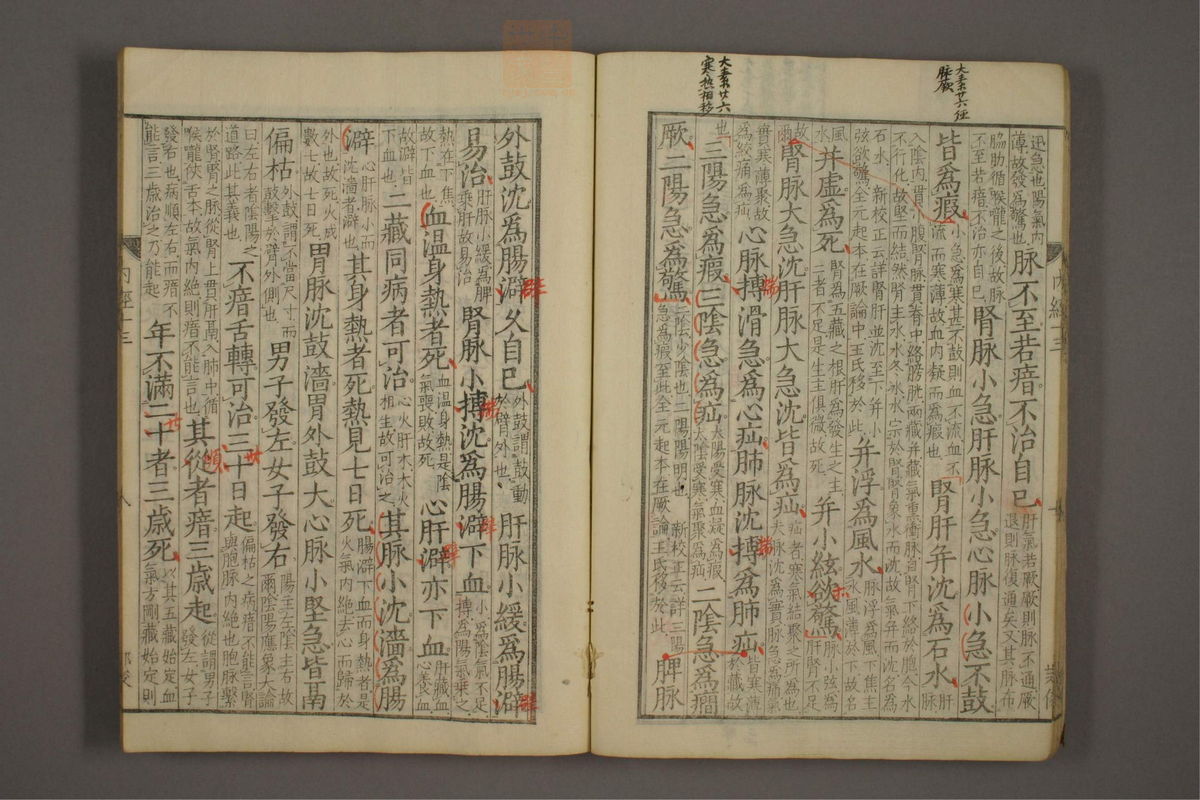 大素廿六經
脉厥
大素廿六
寒熱相移
迅急也陽氣内
薄故發為驚也
脉不至若瘖不治自已
肝氣若厥厥則脉不通厥
退則脉復通矣又其脉布
脇肋循喉嚨之後故脉
不至若瘖不治亦自已
腎脉小急肝脉小急心脉小急不鼓
皆為瘕
小急為寒甚不鼓則血不流血不
流而寒薄故血内凝而為瘕也
腎肝并沈為石水
肝脉
入陰内貫小腹腎脉貫脊中絡膀胱兩藏并藏氣熏衝脉自腎下絡於胞今水
不行化故堅而結然腎主水水冬冰水宗於腎腎象水而沈故氣并而沈名為
石水 新校正云詳腎肝并沈至下并小
弦欲驚全元起本在厥論中王氏移於此
并浮為風水
脉浮為風下焦主
水風薄於下故名
風水
并虚為死
腎為五藏之根肝為發生之主
二者不足是生主俱微故死
并小絃欲驚
脉小弦為
肝腎不足
故爾
腎脉大急沈肝脉大急沈皆為疝
疝者寒氣結聚之所為也
夫脉沈為實脉急為痛氣
實寒薄聚故
為絞痛為疝
心脉搏滑急為心疝肺脉沈搏為肺疝
皆寒薄
於藏故
也
三陽急為瘕三陰急為疝
太陽受寒血凝為瘕
太陰受寒氣聚為疝
二陰急為癇
厥二陽急為驚
二陰少陰也二陽陽明也 新校正云詳三陽
急為瘕至此全元起本在厥論王氏移於此
脾脉
外鼓沈為腸澼久自已
外鼓謂鼓動
於臂外也
肝脉小緩為腸澼
易治
肝脉小緩為脾
乘肝故易治
腎脉小搏沈為腸澼下血
小為陰氣不足
搏為陽氣乗之
熱在下焦
故下血也
血温身熱者死
血温身熱是陰
氣喪敗故死
心肝澼亦下血
肝藏血
心養血
故澼皆
下血也
二藏同病者可治
心火肝木木火
相生故可治之
其脉小沈濇為腸
澼
心肝脉小而
沈濇者澼也
其身熱者死熱見七日死
腸澼下血而身熱者是
火氣内絶去心而歸於
外也故死火成
數七故七日死
胃脉沈鼓濇胃外鼓大心脉小堅急皆鬲
偏枯
外鼓謂不當尺寸而
鼓擊於臂外側也
男子發左女子發右
陽主左陰主右故
爾陰陽應象大論
曰左右者陰陽之
道路此其義也
不瘖舌轉可治三十日起
偏枯之病瘖不能言腎
與胞脉内絶也胞脉繋
於腎腎之脉從腎上貫肝鬲入肺中循
喉嚨俠舌本故氣内絶則瘖不能言也
其從者瘖三歳起
從謂男子
發左女子
發右也病順左右而瘖不
能言三歳治之乃能起
年不滿二十者三歳死
以其五藏始定血
氣方剛藏始定則
内經十三